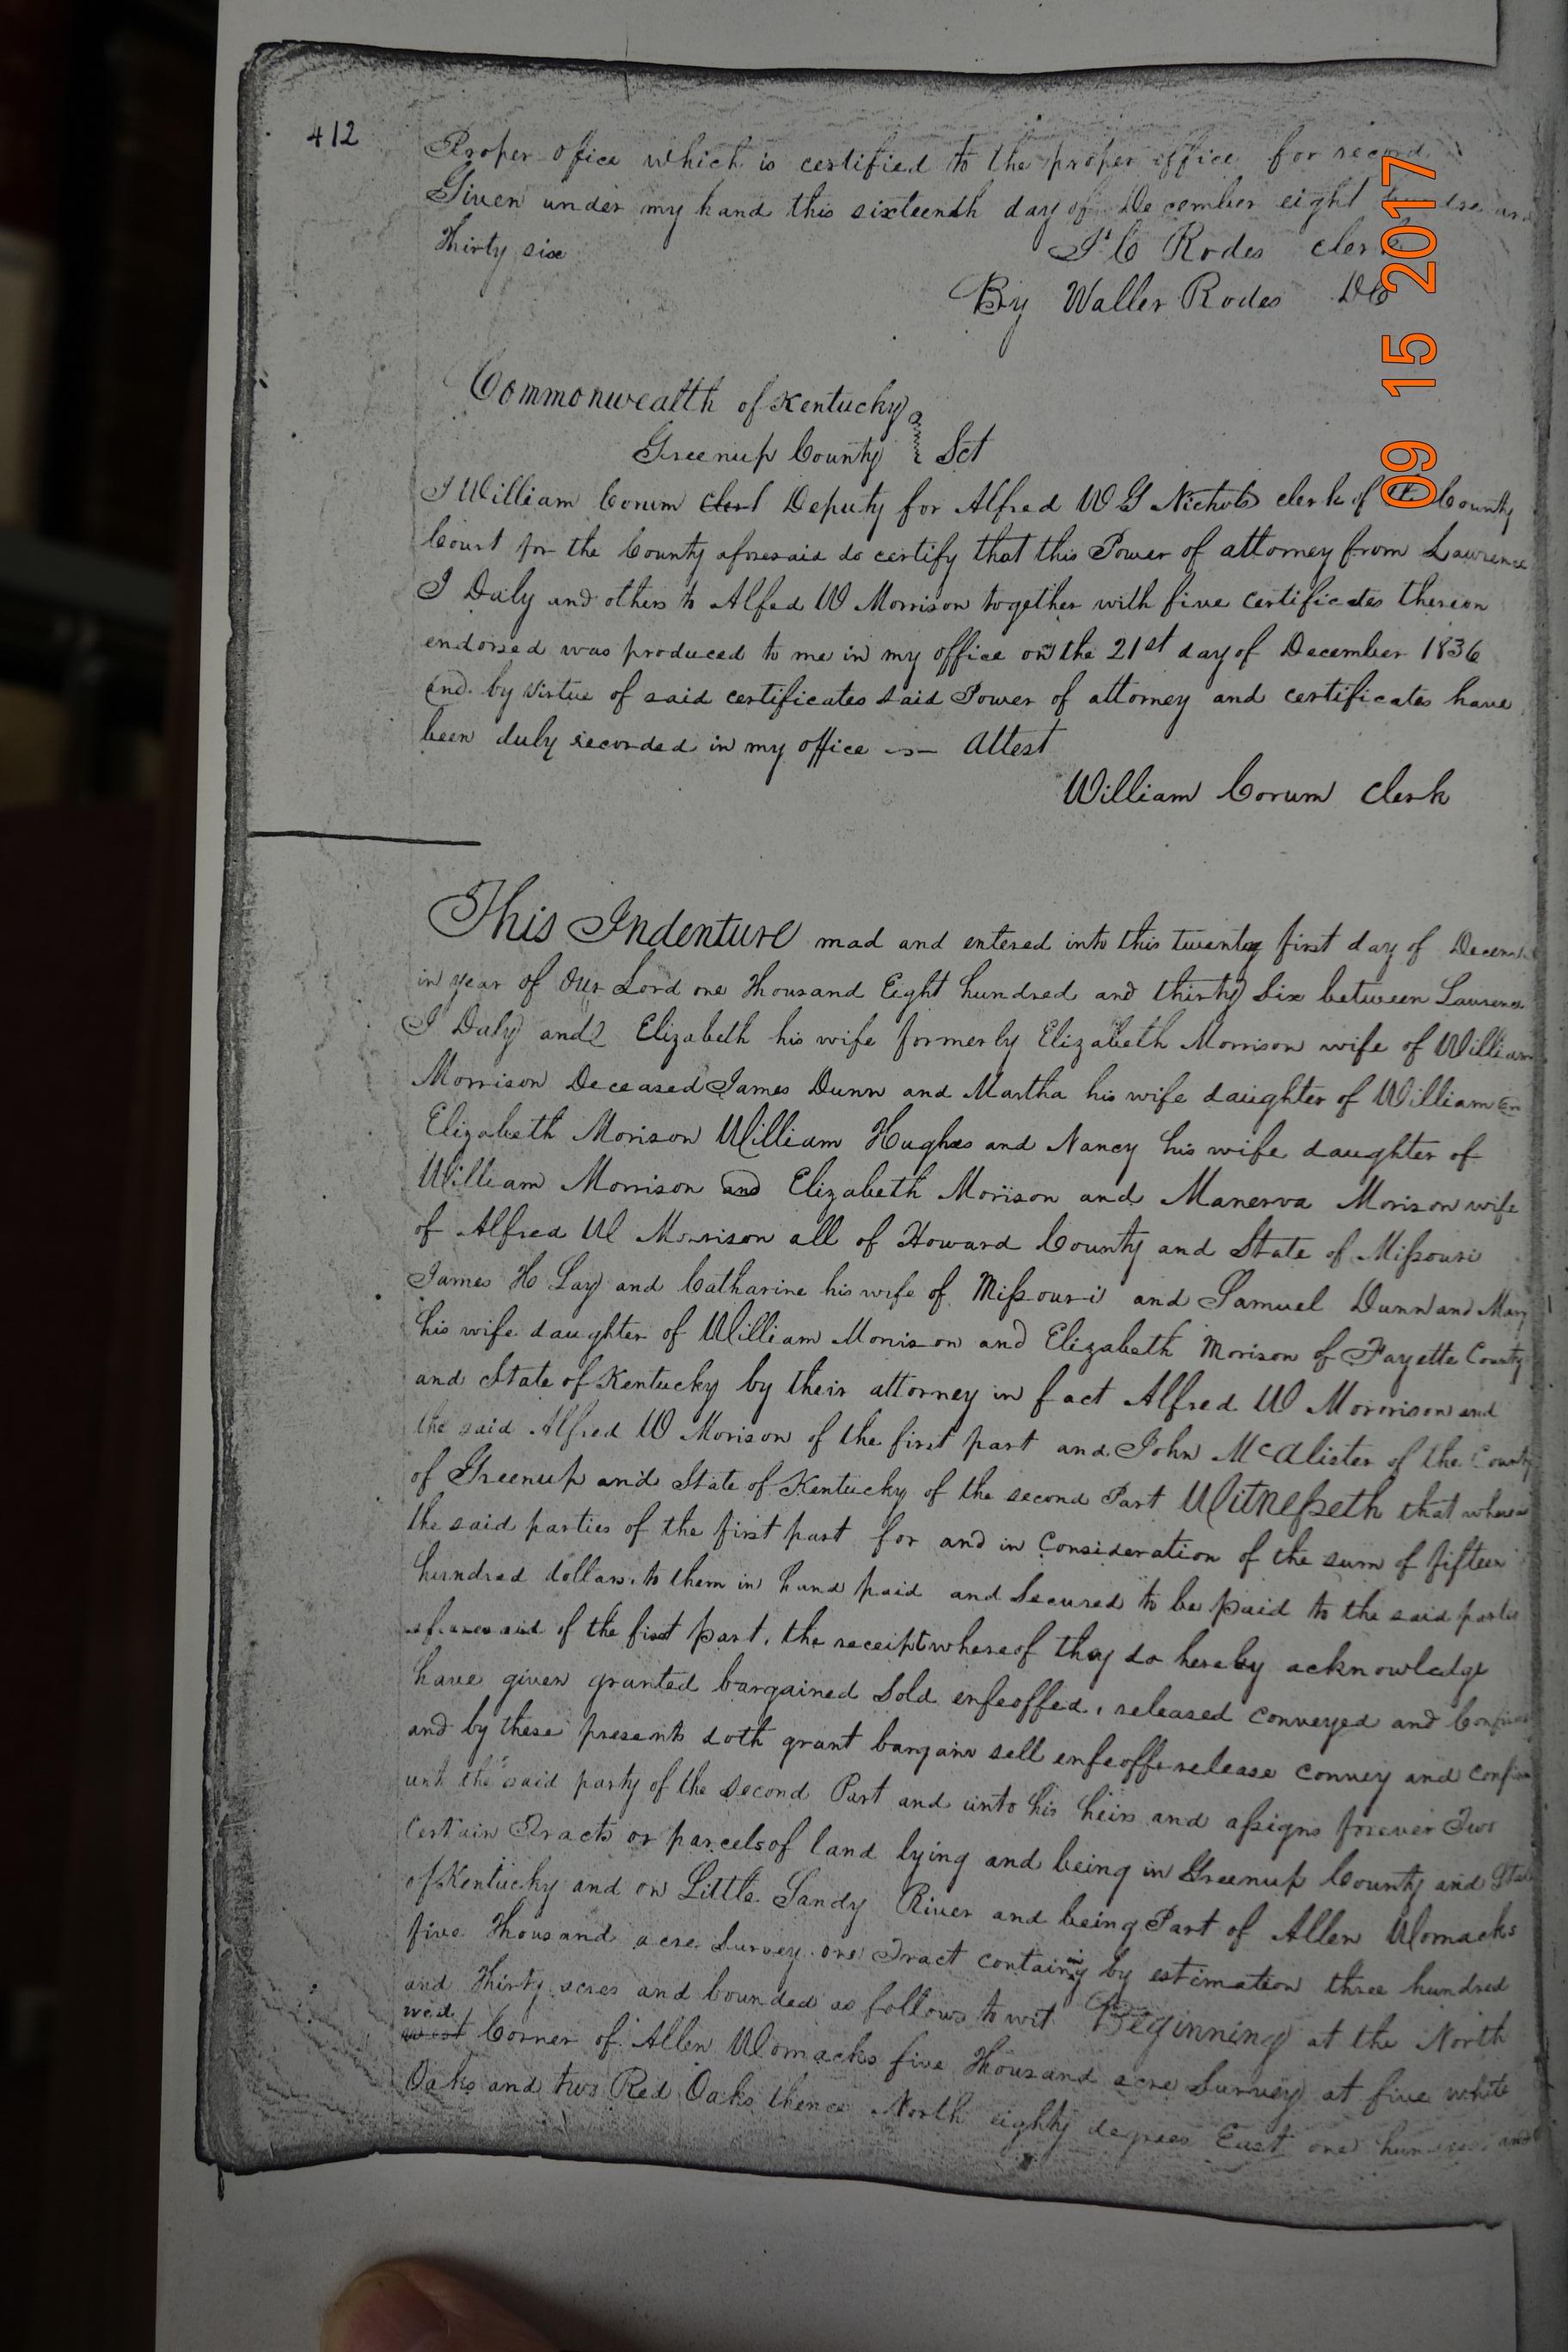 412
Proper office which is certified to the proper office for record
Given under my hand this sixteenth day of December eight
Thirty six
J C Rodes clerk
By Waller Rodes DC
Commonwealth of Kentucky
Greenup County } Sct
I William Corum Clerk Deputy for Alfred W G Nichols clerk of the County
Court for the County aforesaid do certify that this Power of attorney from Lawrence
I Daly and others to Alfed W Morrison together with five certificates thereon
endorsed was produced to me in my office on the 21st day of December 1836
And by virtue of said certificates said Power of attorney and certificates have
been duly recorded in my office Attest
William Corum Clerk
This Indenture mad and entered into this twenty first day of
in year of Our Lord one Thousand Eight hundred and thirty Six between Laurence
I Daly and Elizabeth his wife formerly Elizabeth Morrison wife of William
Morrison Deceased James Dunn and Martha his wife daughter of William
Elizabeth Morison William Hughes and Nancy his wife daughter of
William Morrison and Elizabeth Morison and Manerva Morison wife
of Alfred W Morrison all of Howard County and State of Missouri
James H Lay and Catharine his wife of Missouri and Samuel Dunn and Mary
his wife daughter of William Morison and Elizabeth Morison of Fayette County
and State of Kentucky by their attorney in fact Alfred W Morrison and
the said Alfred W Morison of the first part and John McAlister of the County
of Greenup and State of Kentucky of the second Part Witnesseth that
the said parties of the first part for and in Consideration of the sum of fifteen
hundred dollars to them in hand paid and Secured to be paid to the said
aforesaid of the first part, the receipt whereof they do hereby acknowledge
have given granted bargained Sold enfeoffed, released conveyed and
and by these presents doth grant bargain sell enfeoff release convey and
unto the said party of the Second Part and unto his heirs and assigns forever Two
certain Tracts or parcels of land lying and being in Greenup County and State
of Kentucky and on Little Sandy River and being Part of Allen Womacks
five Thousand acre Survey one Tract containing by estimation three hundred
and Thirty acres and bounded as follows to wit Beginning at the North
west
west Corner of Allen Womacks five Thousand acre Survey at five white
Oaks and two Red Oaks thence North eighty degrees East one hundred and
09 15 2017